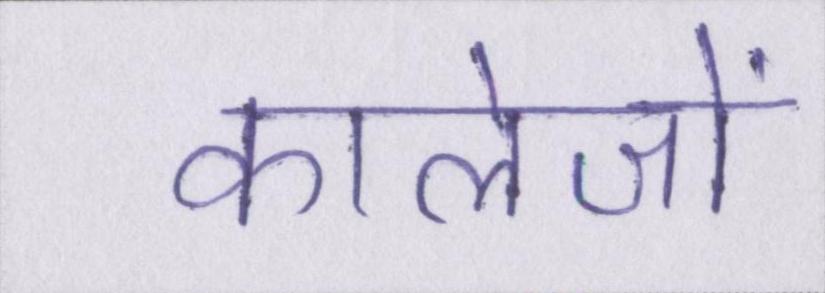 कालेजों